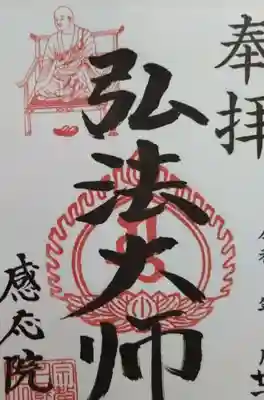 奉拝
弘法大师
感応院